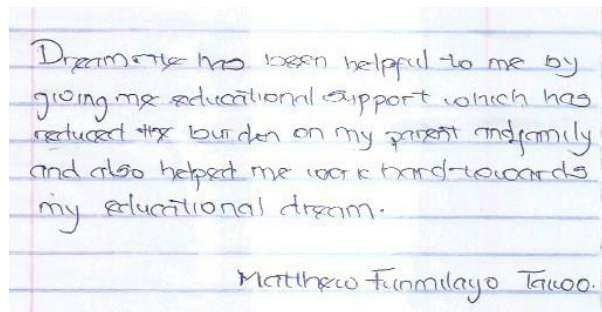 Dreamate has been helpful to me by
giving me educational support which has
reduced the burden on my parent and family
and also helped me work hard towards
my educational dream.
Matthew Funmilayo Taiwo.